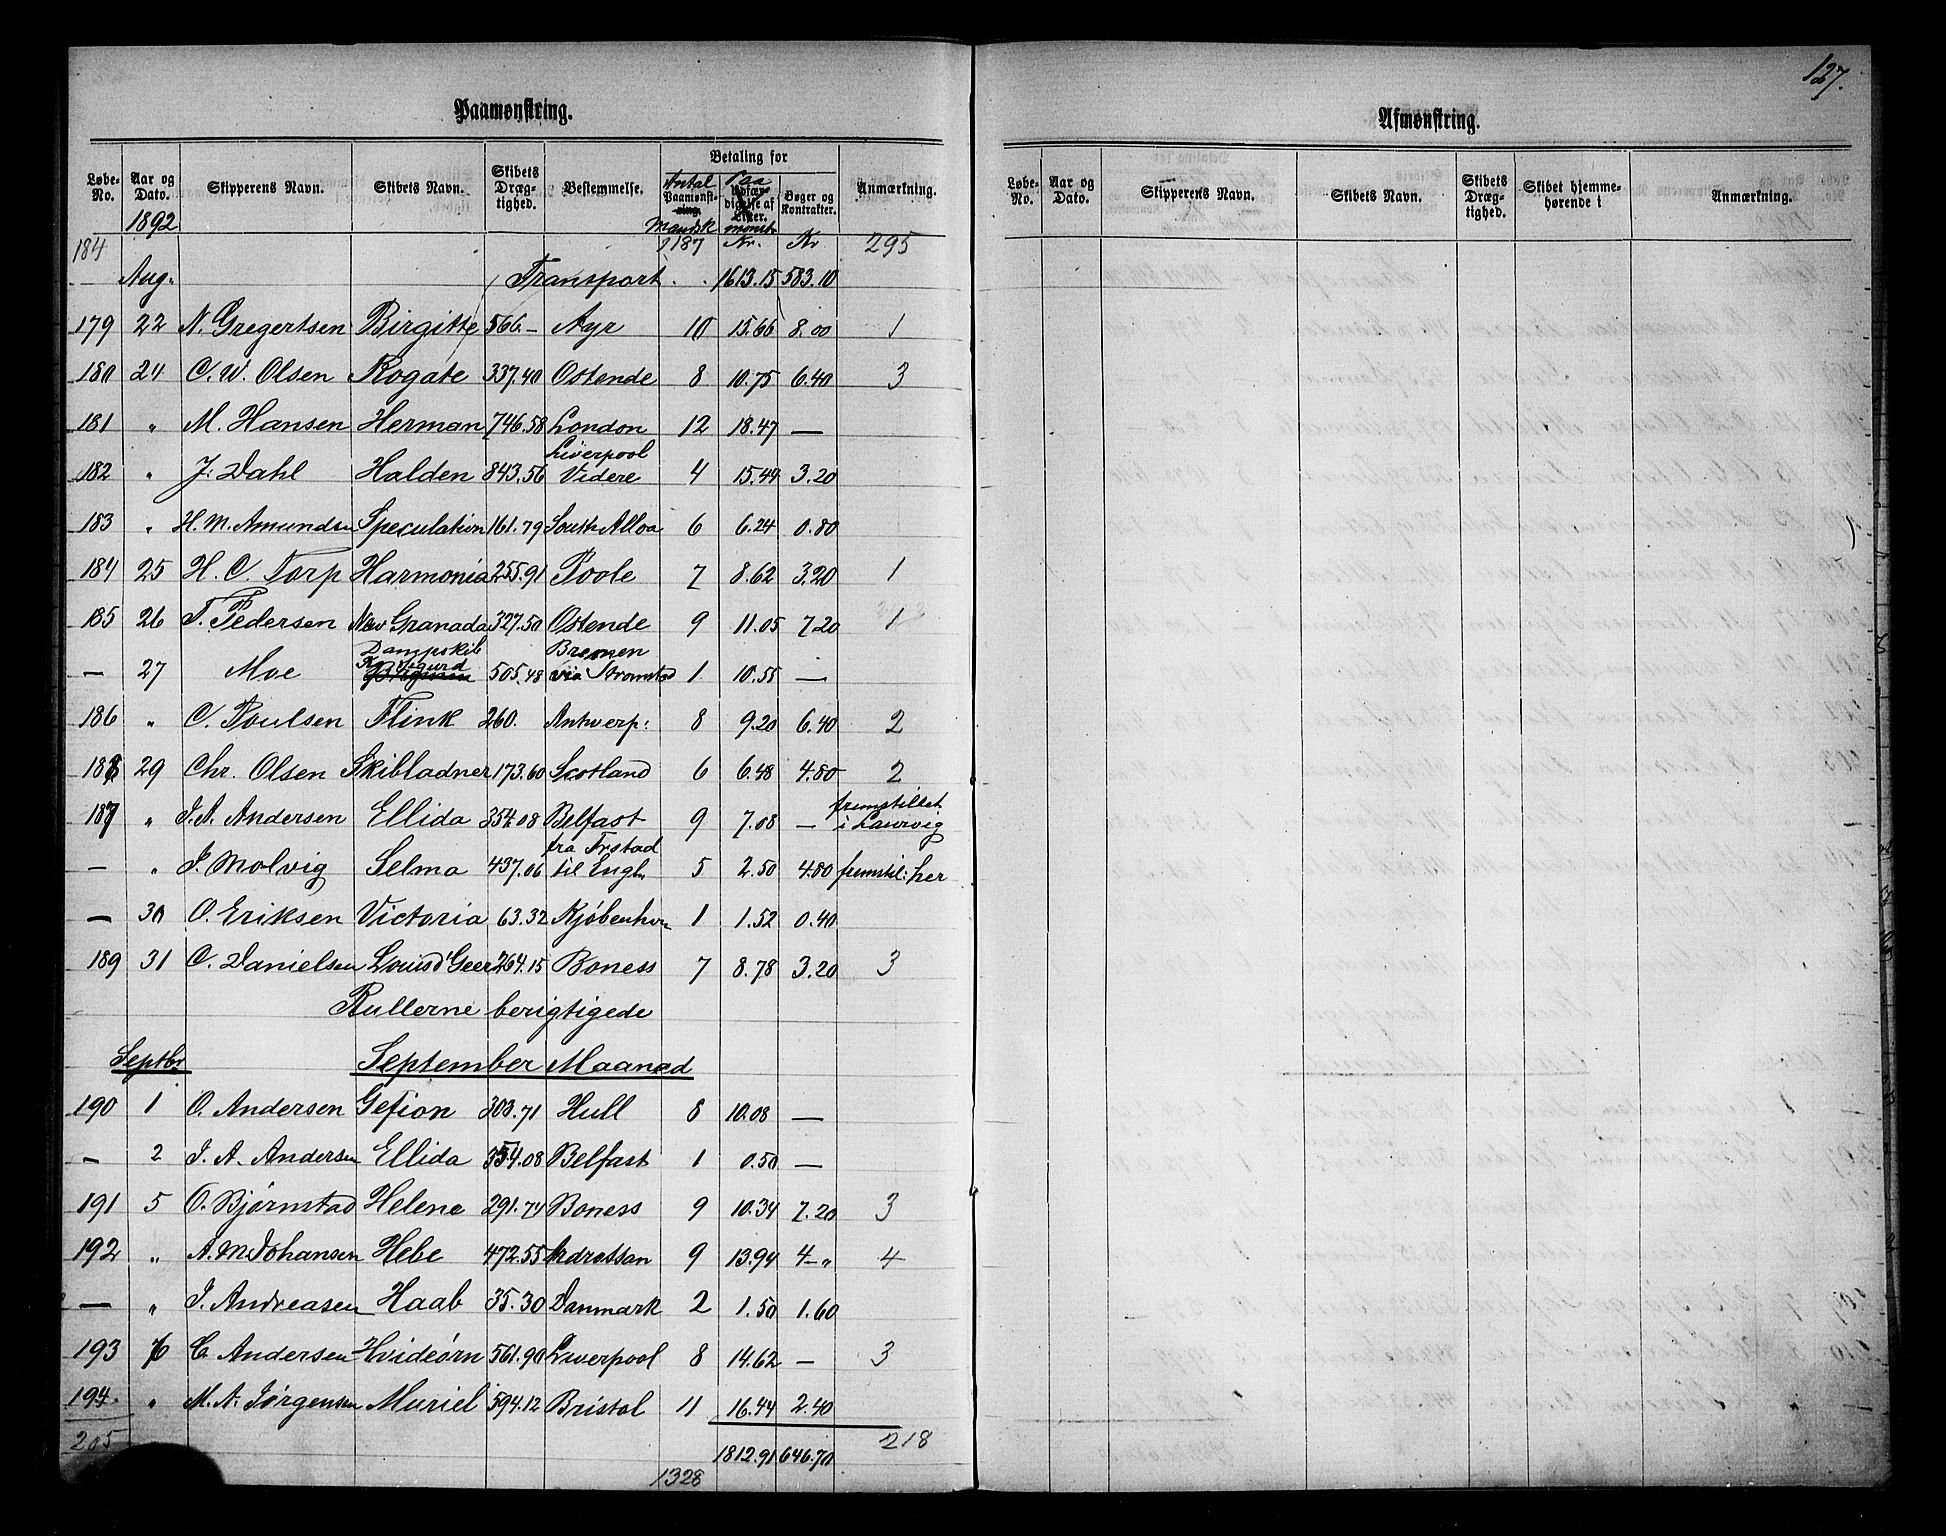 127.
Paamønstring.
Løbe-No. | Aar og Dato. 1892 | Skipperens Navn. | Skibets Navn. | Skibets Dræg-tighed. | Bestemmelse. | Betaling for | Antal Paamønst-ring. Mandsk | Paa Udfær-digelse af Lister. mønst. | Bøger og Kontrakter. | Anmærkning.
184 | 1187 | Kr. | Kr | 295
Aug. | Transport | 1613.15 | 583.10
179 | 22 | N. Gregertsen | Birgitte | 566.– | Ayr | 10 | 15.66 | 8.00 | 1
180 | 24 | C. W. Olsen | Rogate | 337.40 | Ostende | 8 | 10.75 | 6.40 | 3
181 | " | M. Hansen | Herman | 746.58 | London | 12 | 18.47 | —
182 | " | J. Dahl | Halden | 843.56 | Liverpool Videre | 4 | 15.44 | 3.20
183 | " | H. M. Amundsen | Speculation | 161.79 | South Alloa | 6 | 6.24 | 0.80
184 | 25 | H. C. Torp | Harmonia | 255.91 | Poole | 7 | 8.62 | 3.20 | 1
185 | 26 | T. Pedersen | New Granada | 327.50 | Ostende | 9 | 11.05 | 7.20 | 1
— | 27 | Moe | Dampskib Kg Sigurd | 505.48 | Bremen via Strømstad | 1 | 10.55 | —
186 | " | C. Poulsen | Flink | 260. | Antwerp: | 8 | 9.20 | 6.40 | 2
188 | 29 | Chr. Olsen | Skibladner | 173.60 | Scotland | 6 | 6.48 | 4.80 | 2
187 | " | J. A. Andersen | Ellida | 354.08 | Belfast | 9 | 7.08 | — | fremstillet i Laurvig
— | " | J. Molvig | Selma | 437.06 | fra Frstad til Engl. | 5 | 2.50 | 4.80 | fremstil: her
— | 30 | O. Eriksen | Victoria | 63.32 | Kjøbenhvn | 1 | 1.52 | 0.40
189 | 31 | C. Danielsen | Louis d'Geer | 264.15 | Boness | 7 | 8.78 | 3.20 | 3
Rullerne berigtigede
Septbr | September Maaned
190 | 1 | O. Andersen | Gefion | 303.71 | Hull | 8 | 10.08 | —
— | 2 | J. A. Andersen | Ellida | 354.08 | Belfast | 1 | 0.50 | —
191 | 5 | O. Bjørnstad | Helene | 291.74 | Boness | 9 | 10.34 | 7.20 | 3
192 | " | A. M. Johansen | Hebe | 472.55 | Ardrossan | 9 | 13.94 | 4–" | 4
— | " | J. Andreasen | Haab | 35.30 | Danmark | 2 | 1.50 | 1.60
193 | 6 | C. Andersen | Hvideørn | 561.90 | Liverpool | 8 | 14.62 | — | 3
194. | " | M. A. Jørgensen | Muriel | 594.12 | Bristol | 11 | 16.44 | 2.40
205 | 1812.91 | 646.70 | 218
1328
Afmønstring.
Løbe-No. | Aar og Dato. | Skipperens Navn. | Skibets Navn. | Skibets Dræg-tighed. | Skibet hjemme-hørende i | Anmærkning.